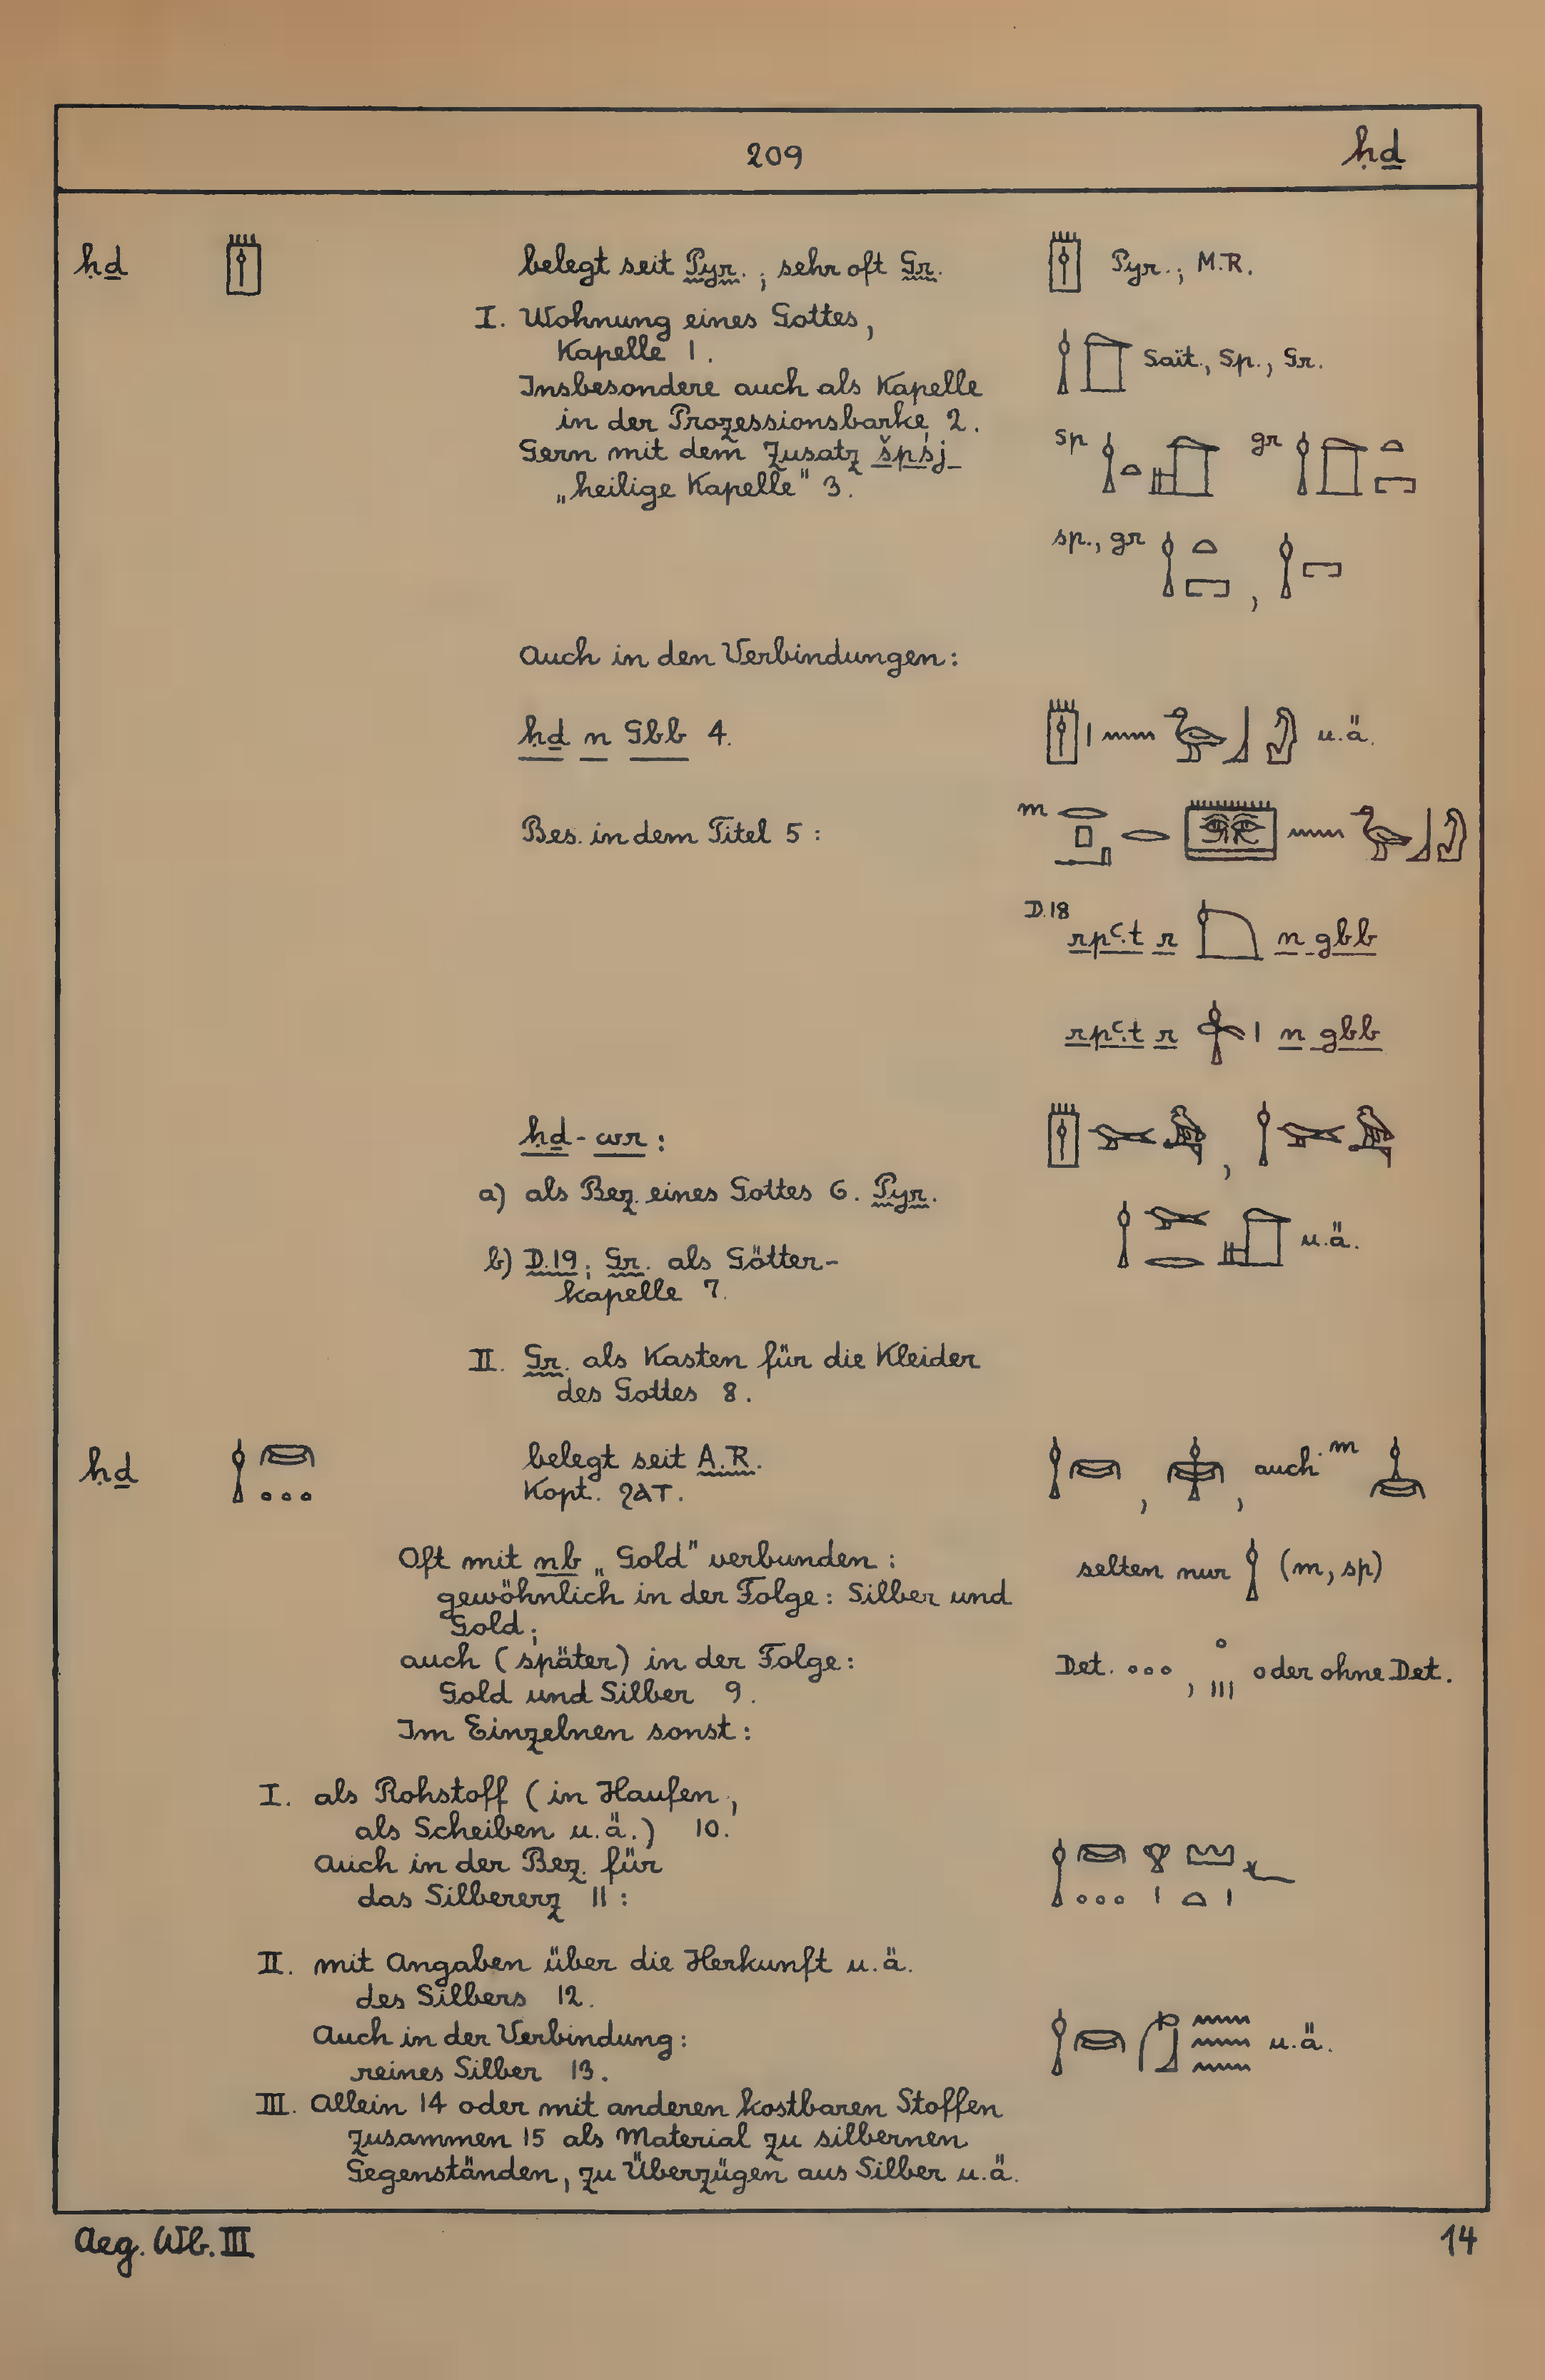 209 ḥḏ
ḥḏ belegt seit Pyr.; sehr oft Gr. Pyr.; M.R.
I. Wohnung eines Gottes,
Kapelle 1.
Sait., Sp., Gr.
Insbesondere auch als Kapelle
in der Prozessionsbarke 2.
Gern mit dem Zusatz špśj
„heilige Kapelle" 3.
sp gr
sp., gr ,
Auch in den Verbindungen:
ḥḏ n Gbb 4. u.ä.
Bes. in dem Titel 5: m
D.18
rpꜥ.t r n gbb
rpꜥ.t r n gbb
ḥḏ-wr: ,
a) als Bez. eines Gottes 6. Pyr.
u.ä.
b) D.19; Gr. als Götter-
kapelle 7.
II. Gr. als Kasten für die Kleider
des Gottes 8.
ḥḏ belegt seit A.R. , , auch m
Kopt. ϩⲁⲧ.
Oft mit nb „Gold" verbunden: selten nur (m, sp)
gewöhnlich in der Folge: Silber und
Gold;
auch (später) in der Folge: Det. , oder ohne Det.
Gold und Silber 9.
Im Einzelnen sonst:
I. als Rohstoff (in Haufen,
als Scheiben u.ä.) 10.
Auch in der Bez. für
das Silbererz 11:
II. mit Angaben über die Herkunft u.ä.
des Silbers 12.
Auch in der Verbindung: u.ä.
reines Silber 13.
III. Allein 14 oder mit anderen kostbaren Stoffen
zusammen 15 als Material zu silbernen
Gegenständen, zu Überzügen aus Silber u.ä.
Aeg. Wb. III 14